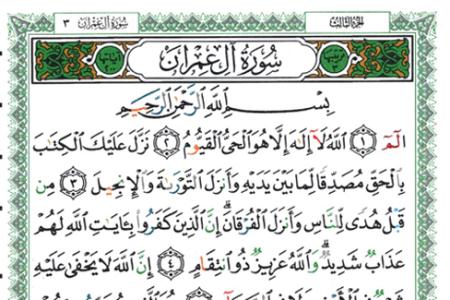 سُورَةُ آلِ عِمْرَانَ ٣ الجزء الثالث
سُورَةُ آلِ عِمْرَانَ
بِسْمِ اللَّهِ الرَّحْمَٰنِ الرَّحِيمِ
الٓمٓ ١ اللَّهُ لَآ إِلَٰهَ إِلَّا هُوَ الْحَيُّ الْقَيُّومُ ٢ نَزَّلَ عَلَيْكَ الْكِتَٰبَ
بِالْحَقِّ مُصَدِّقًا لِّمَا بَيْنَ يَدَيْهِ وَأَنزَلَ التَّوْرَىٰةَ وَالْإِنجِيلَ ٣ مِن
قَبْلُ هُدًى لِّلنَّاسِ وَأَنزَلَ الْفُرْقَانَ ۗ إِنَّ الَّذِينَ كَفَرُوا بِـَٔايَٰتِ اللَّهِ لَهُمْ
عَذَابٌ شَدِيدٌ ۗ وَاللَّهُ عَزِيزٌ ذُو انتِقَامٍ ٤ إِنَّ اللَّهَ لَا يَخْفَىٰ عَلَيْهِ